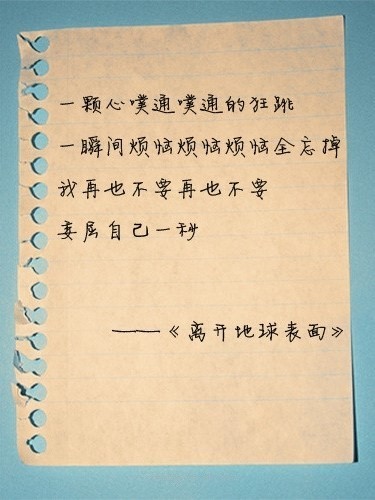 一颗心噗通噗通的狂跳
一瞬间烦恼烦恼烦恼全忘掉
我再也不要再也不要
委屈自己一秒
——《离开地球表面》